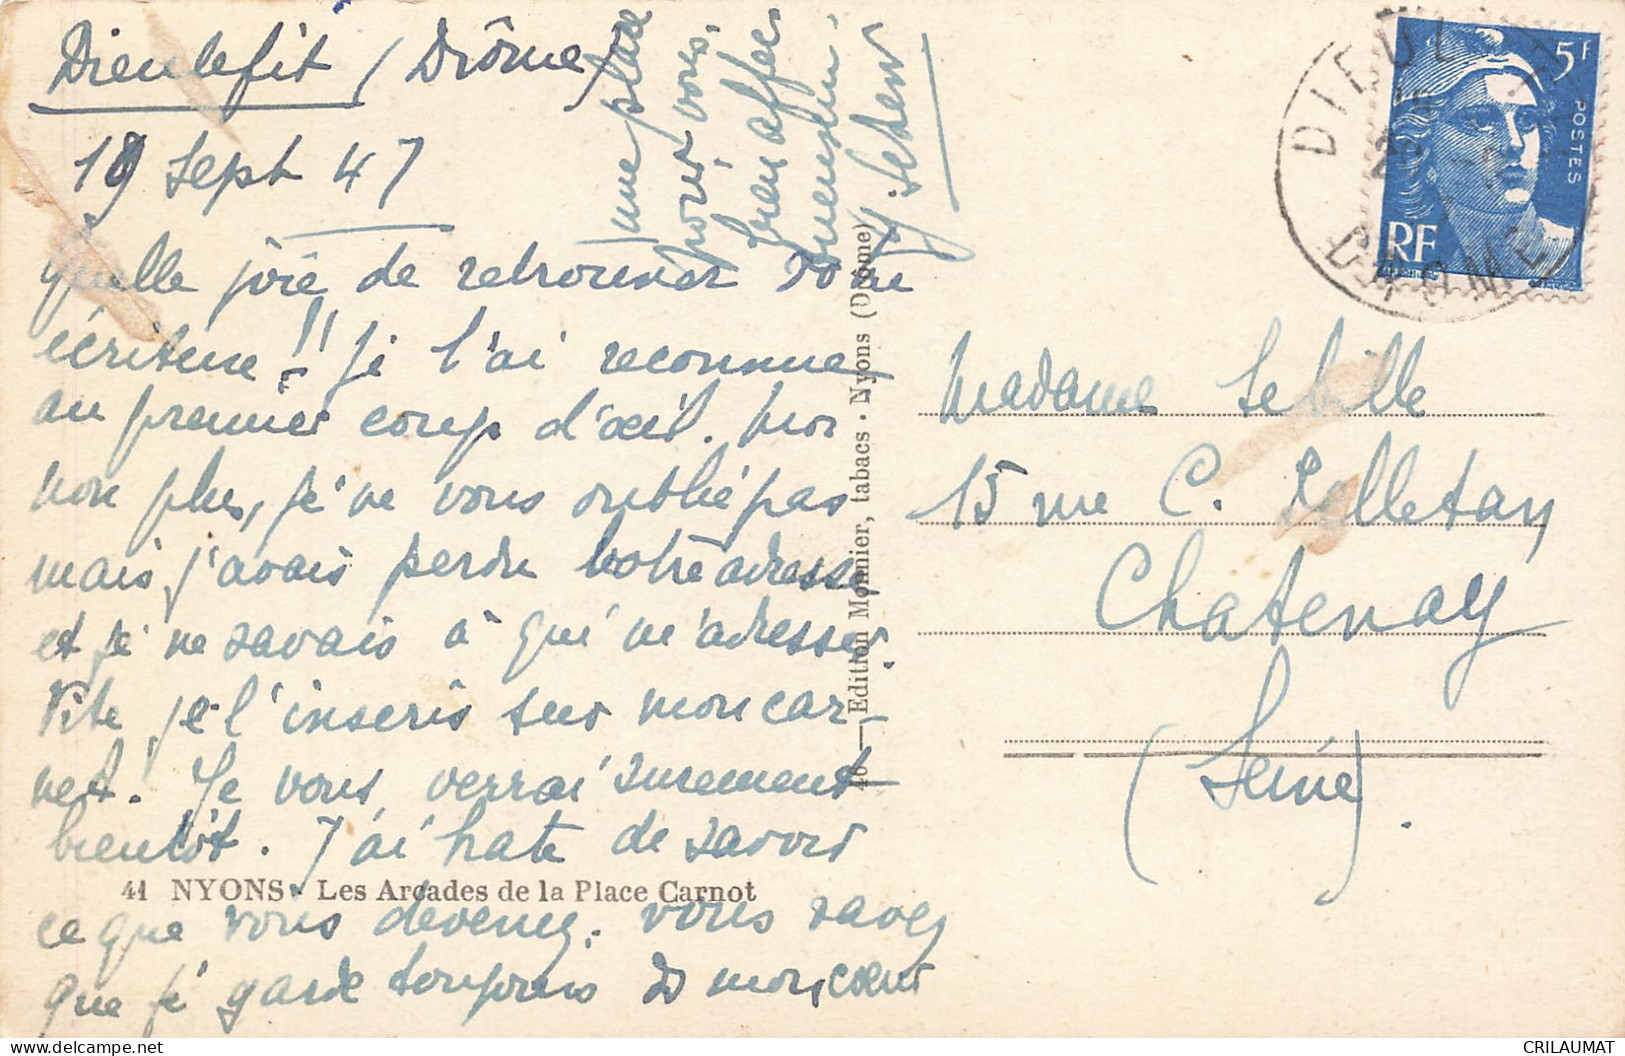 Dieulefit (Drôme)
19 Sept 47
Quelle joie de retrouver votre
écriture !! Je l'ai reconnue
au premier coup d'œil. Moi
non plus, je ne vous oublie pas
mais j'avais perdu votre adresse
et je ne savais à qui m'adresser.
Vite je l'inscris sur mon car-
net ! Je vous verrai surement
bientôt. J'ai hate de savoir
41 NYONS - Les Arcades de la Place Carnot
ce que vous devenez. vous savez
que je garde toujours ds mon cœur
une place
pour vous.
bien affec
tueusement
46 — Edition Monnier, tabacs - Nyons (Drôme)
5F
POSTES
RF
DIEUL
DROME
Madame Sebille
15 rue C. Pelletan
Chatenay
(Seine).
delcampe.net
CRILAUMAT